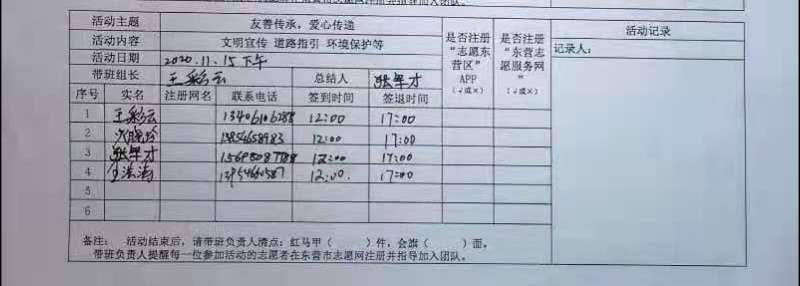 活动主题 友善传承，爱心传递 是否注册“志愿东营区”APP（√或×） 是否注册“东营志愿服务网”（√或×） 活动记录
活动内容 文明宣传 道路指引 环境保护等 记录人：
活动日期 2020.11.15下午
带班组长 王彩云 总结人
序号 实名 注册网名 联系电话 签到时间 签退时间
1 王彩云 12:00 17:00
2 12:00 17:00
3 12:00 17:00
4 12:00 17:00
5
6
备注： 活动结束后，请带班负责人清点：红马甲（ ）件，会旗（ ）面。
带班负责人提醒每一位参加活动的志愿者在东营市志愿网注册并指导加入团队。